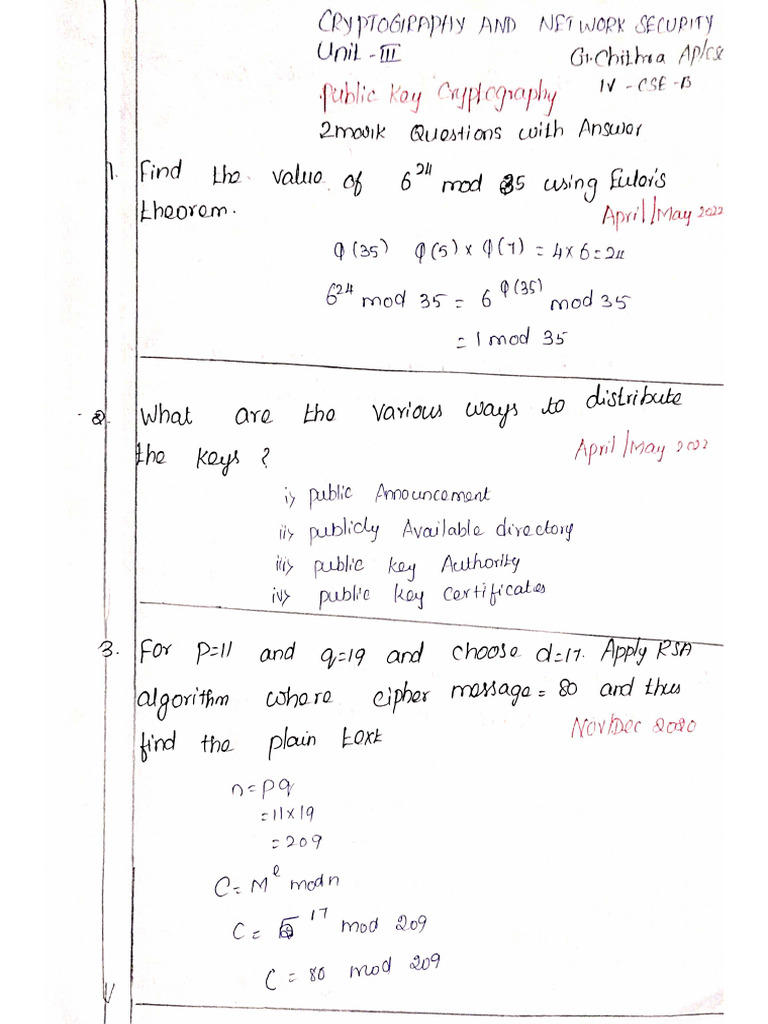 CRYPTOGRAPHY AND NETWORK SECURITY
Unit - III
G.Chithra AP/CSE
Public Key Cryptography
IV - CSE - B
2 mark Questions with Answer
1. Find the value of 6^24 mod 35 using Euler's
theorem.
April/May 2022
φ(35) φ(5) × φ(7) = 4 × 6 = 24
6^24 mod 35 = 6^φ(35) mod 35
= 1 mod 35
2. What are the various ways to distribute
the keys ?
April/May 2022
i) public Announcement
ii) publicly Available directory
iii) public key Authority
iv) public key certificates
3. For p=11 and q=19 and choose d=17. Apply RSA
algorithm where cipher message = 80 and thus
find the plain text
Nov/Dec 2020
n = pq
= 11 × 19
= 209
C = M^e mod n
C = ^17 mod 209
C = 80 mod 209